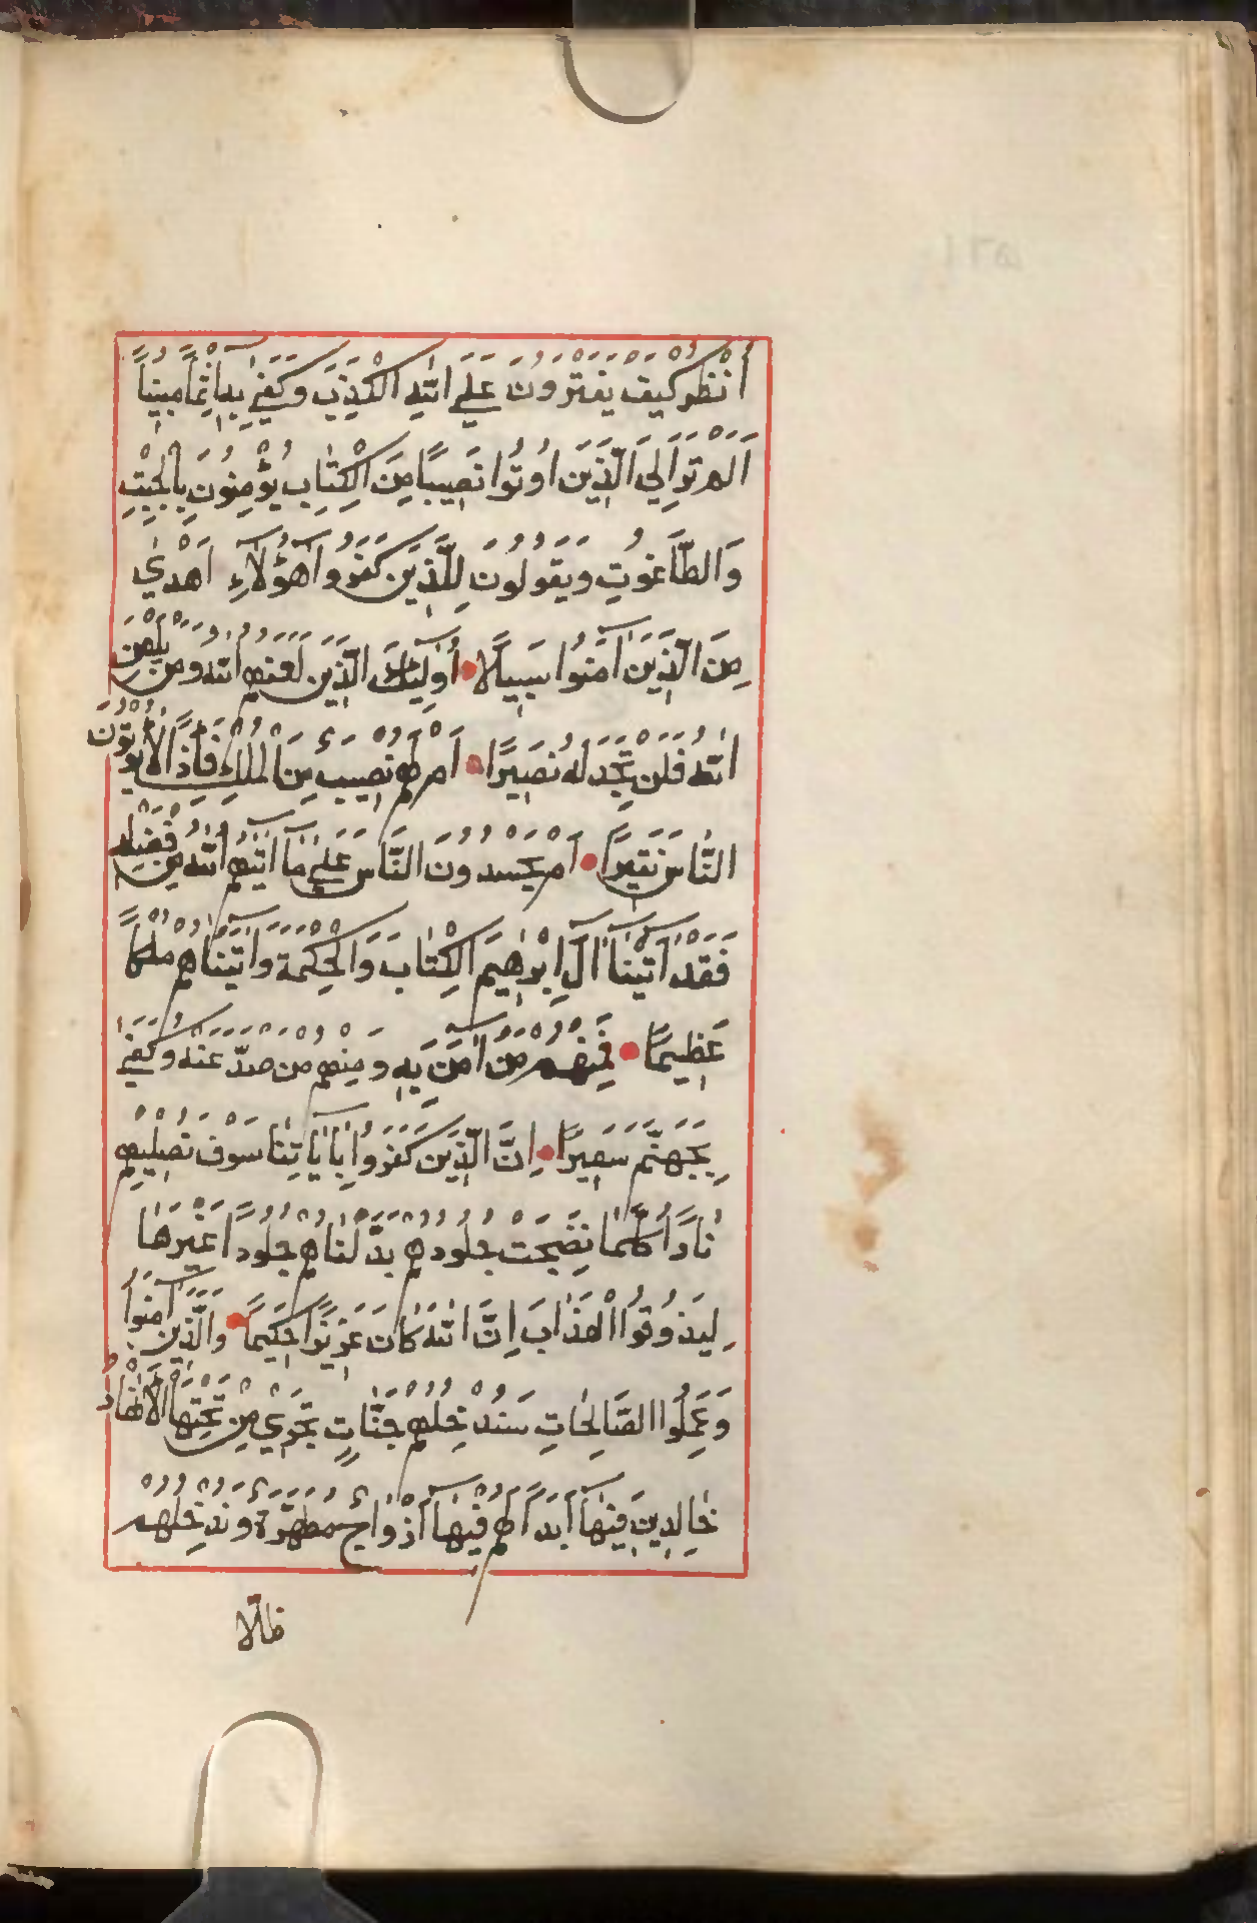 اُنْظُرْ كَيْفَ يَفْتَرُونَ عَلَي اللّٰهِ الْكَذِبَ وَكَفٰي بِهِ اِثْمًا مُبِينًا
اَلَمْ تَرَ اِلَي الَّذِينَ اُوتُوا نَصِيبًا مِنَ الْكِتٰابِ يُؤْمِنُونَ بِالْجِبْتِ
وَالطّٰاغُوتِ وَيَقُولُونَ لِلَّذِينَ كَفَرُوا هٰؤُلٰاءِ اَهْدٰي
مِنَ الَّذِينَ اٰمَنُوا سَبِيلًا اُولٰئِكَ الَّذِينَ لَعَنَهُمُ اللّٰهُ وَمَنْ يَلْعَنِ
اللّٰهُ فَلَنْ تَجِدَ لَهُ نَصِيرًا اَمْ لَهُمْ نَصِيبٌ مِنَ الْمُلْكِ فَاِذًا لٰا يُؤْتُونَ
النّٰاسَ نَقِيرًا اَمْ يَحْسُدُونَ النّٰاسَ عَلٰي مٰا اٰتٰيهُمُ اللّٰهُ مِنْ فَضْلِهِ
فَقَدْ اٰتَيْنٰا اٰلَ اِبْرٰهِيمَ الْكِتٰابَ وَالْحِكْمَةَ وَاٰتَيْنٰاهُمْ مُلْكًا
عَظِيمًا فَمِنْهُمْ مَنْ اٰمَنَ بِهِ وَمِنْهُمْ مَنْ صَدَّ عَنْهُ وَكَفٰي
بِجَهَنَّمَ سَعِيرًا اِنَّ الَّذِينَ كَفَرُوا بِاٰيٰاتِنٰا سَوْفَ نُصْلِيهِمْ
نٰارًا كُلَّمٰا نَضِجَتْ جُلُودُهُمْ بَدَّلْنٰاهُمْ جُلُودًا غَيْرَهٰا
لِيَذُوقُوا الْعَذٰابَ اِنَّ اللّٰهَ كٰانَ عَزِيزًا حَكِيمًا وَالَّذِينَ اٰمَنُوا
وَعَمِلُوا الصّٰالِحٰاتِ سَنُدْخِلُهُمْ جَنّٰاتٍ تَجْرِي مِنْ تَحْتِهَا الْاَنْهٰارُ
خٰالِدِينَ فِيهٰا اَبَدًا لَهُمْ فِيهٰا اَزْوٰاجٌ مُطَهَّرَةٌ وَنُدْخِلُهُمْ
ظلّا